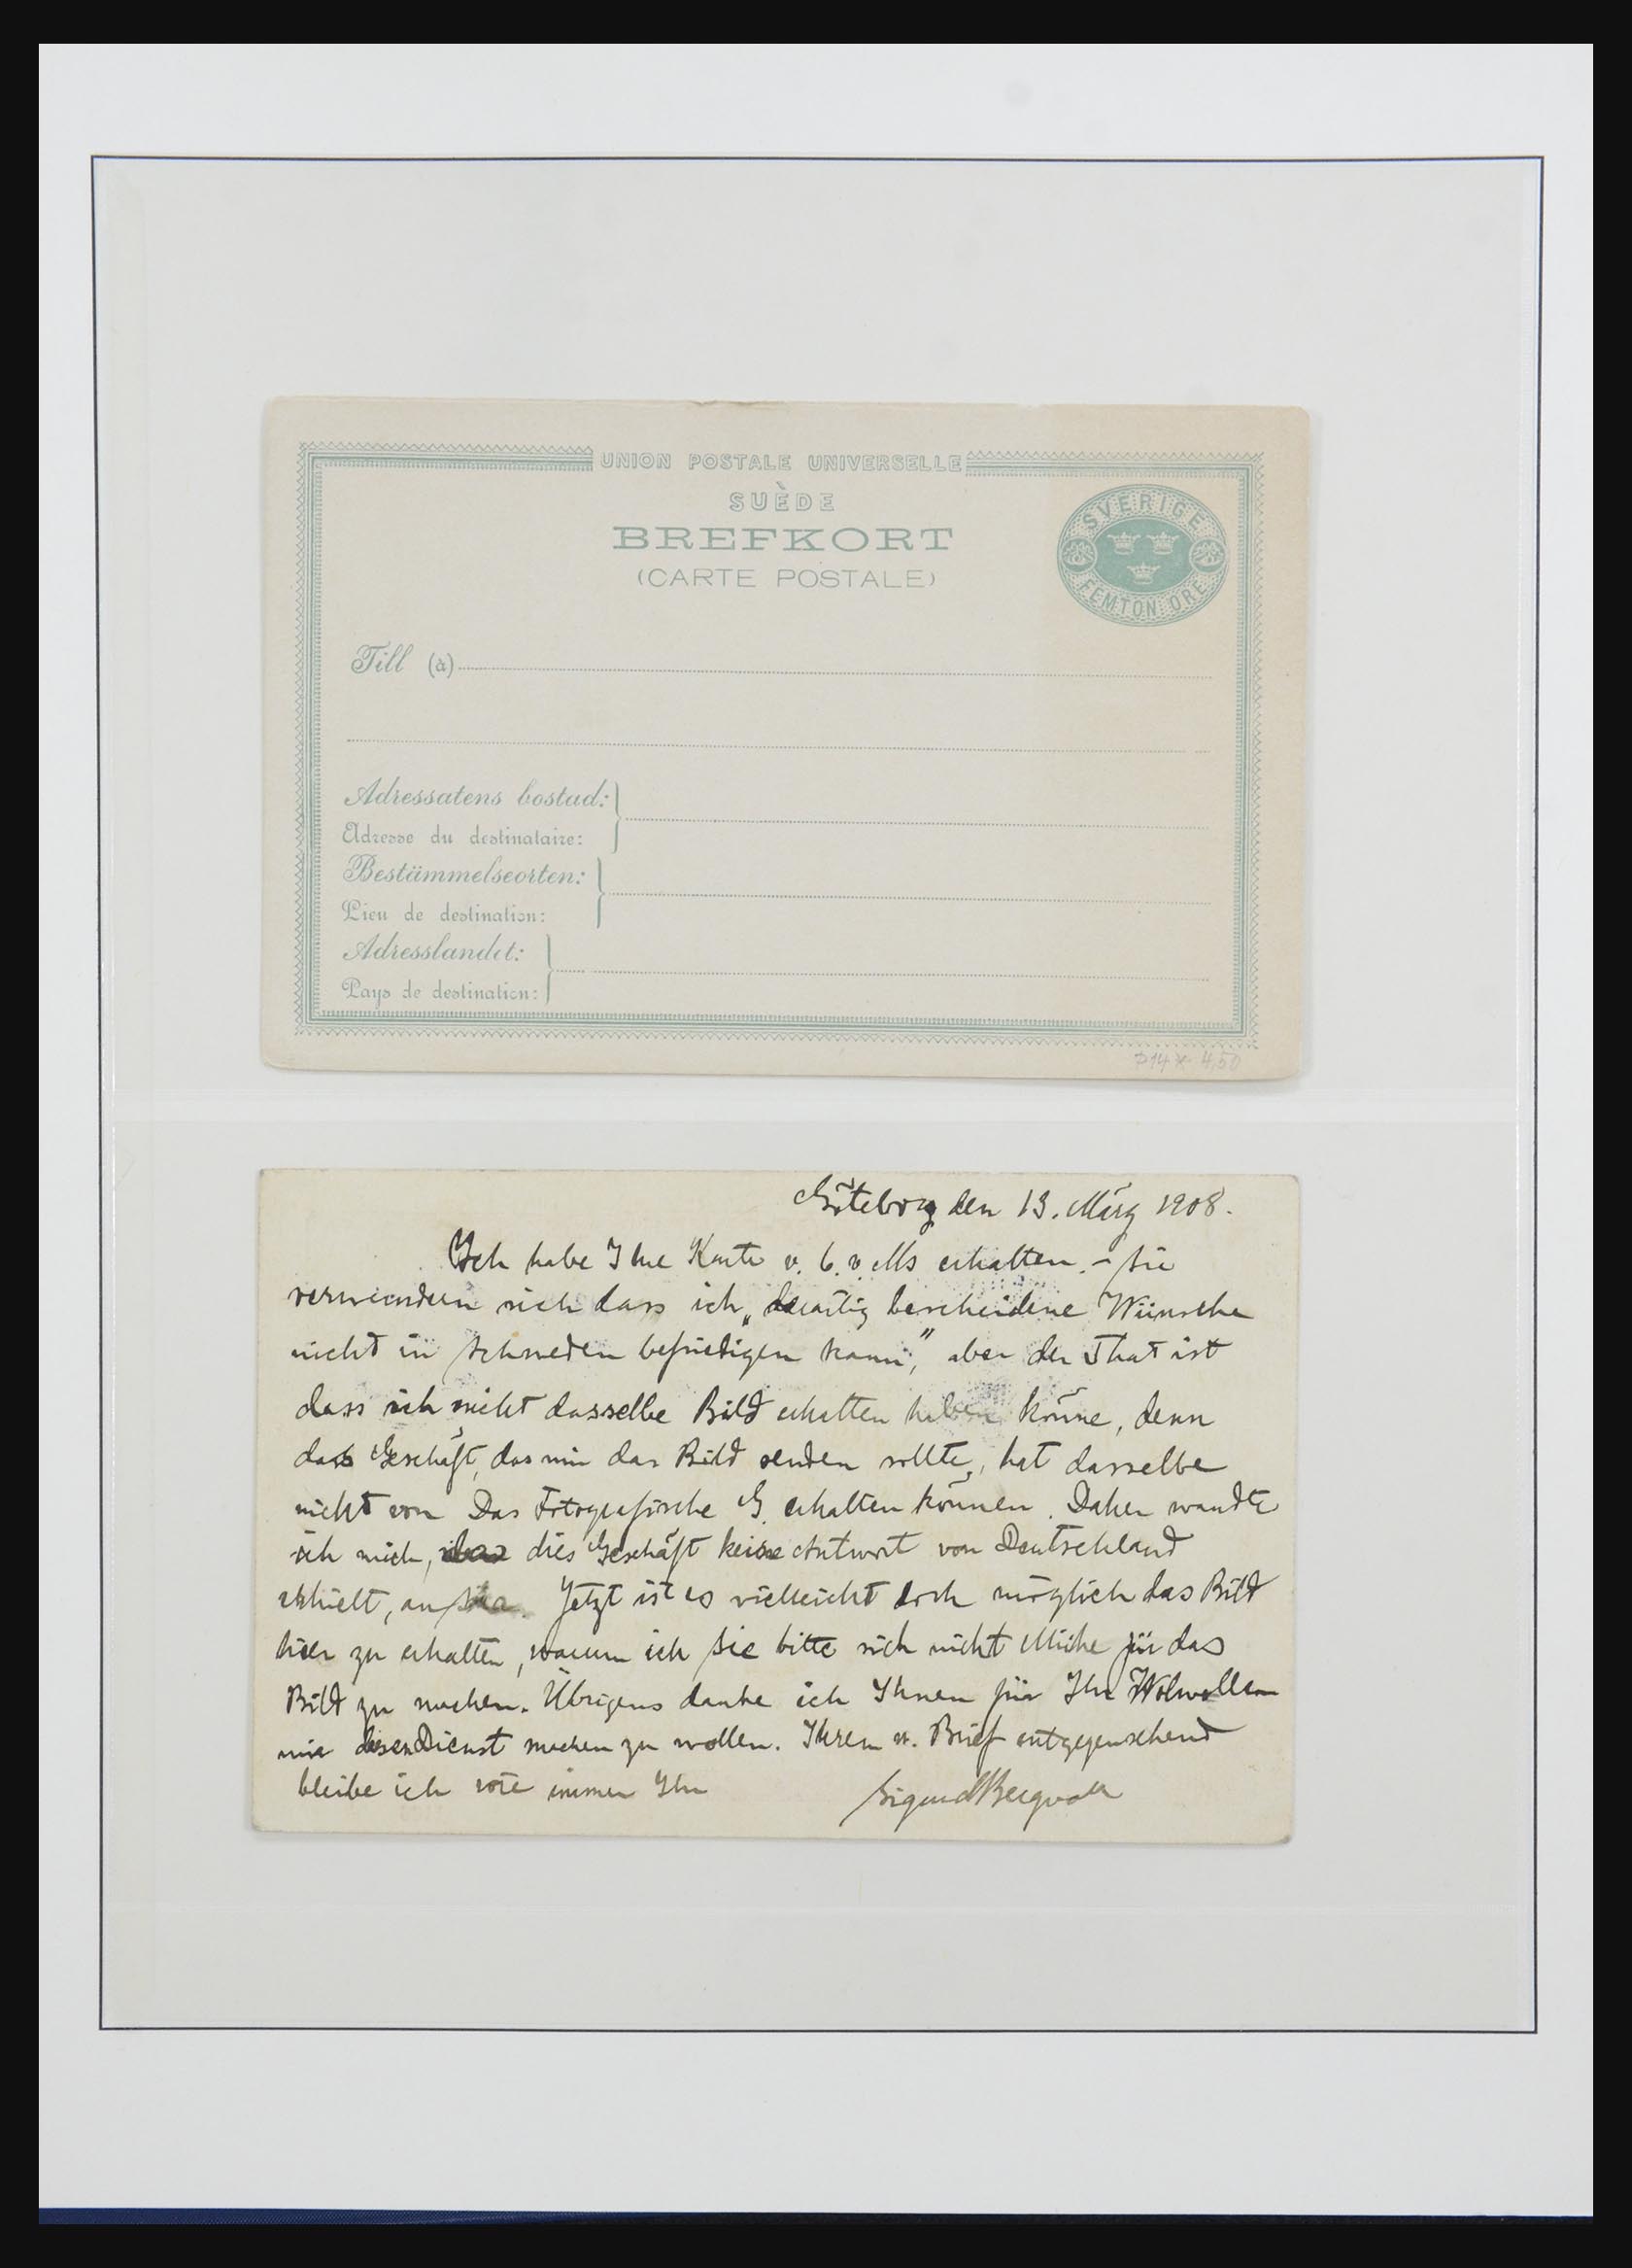 UNION POSTALE UNIVERSELLE
SUÈDE
BREFKORT
(CARTE POSTALE)
SVERIGE
FEMTON ÖRE
Till (à)
Adressatens bostad:
Adresse du destinataire:
Bestämmelseorten:
Lieu de destination:
Adresslandet:
Pays de destination:
P14 * 4,50
Göteborg den 13. März 1908.
Ich habe Ihre Karte v. 6. v Ms erhalten. – Sie
verwundern sich dass ich „derartig bescheidene Wünsche
nicht in Schweden befriedigen kann,” aber der That ist
dass ich nicht dasselbe Bild erhalten haben könne, denn
das Geschäft, das mir das Bild senden sollte, hat dasselbe
nicht von Das Fotografische G. erhalten können. Daher wandte
ich mich, dies Geschäft keine Antwort von Deutschland
erhielt, an Sie. Jetzt ist es vielleicht doch möglich das Bild
hier zu erhalten, warum ich Sie bitte sich nicht Mühe für das
Bild zu machen. Übrigens danke ich Ihnen für Ihr Wolwollen
mir diesen Dienst machen zu wollen. Ihrem w. Brief entgegensehend
bleibe ich wie immer Ihr
Sigurd Bergvall